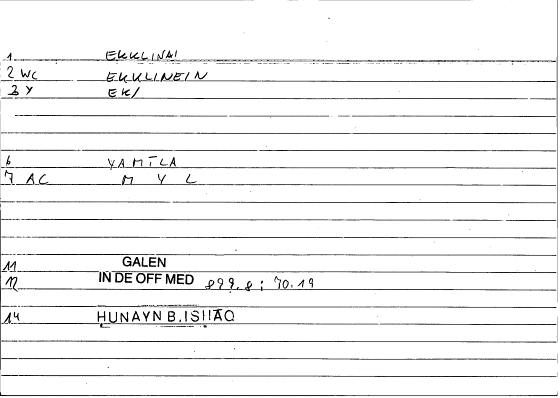 1 EKKLINAI
2 WC EKKLINEIN
3 Y EK/
6 YAMĪLA
7 AC M Y L
11 GALEN
12 IN DE OFF MED 899.8 : 70.19
14 HUNAYN B. ISHĀQ